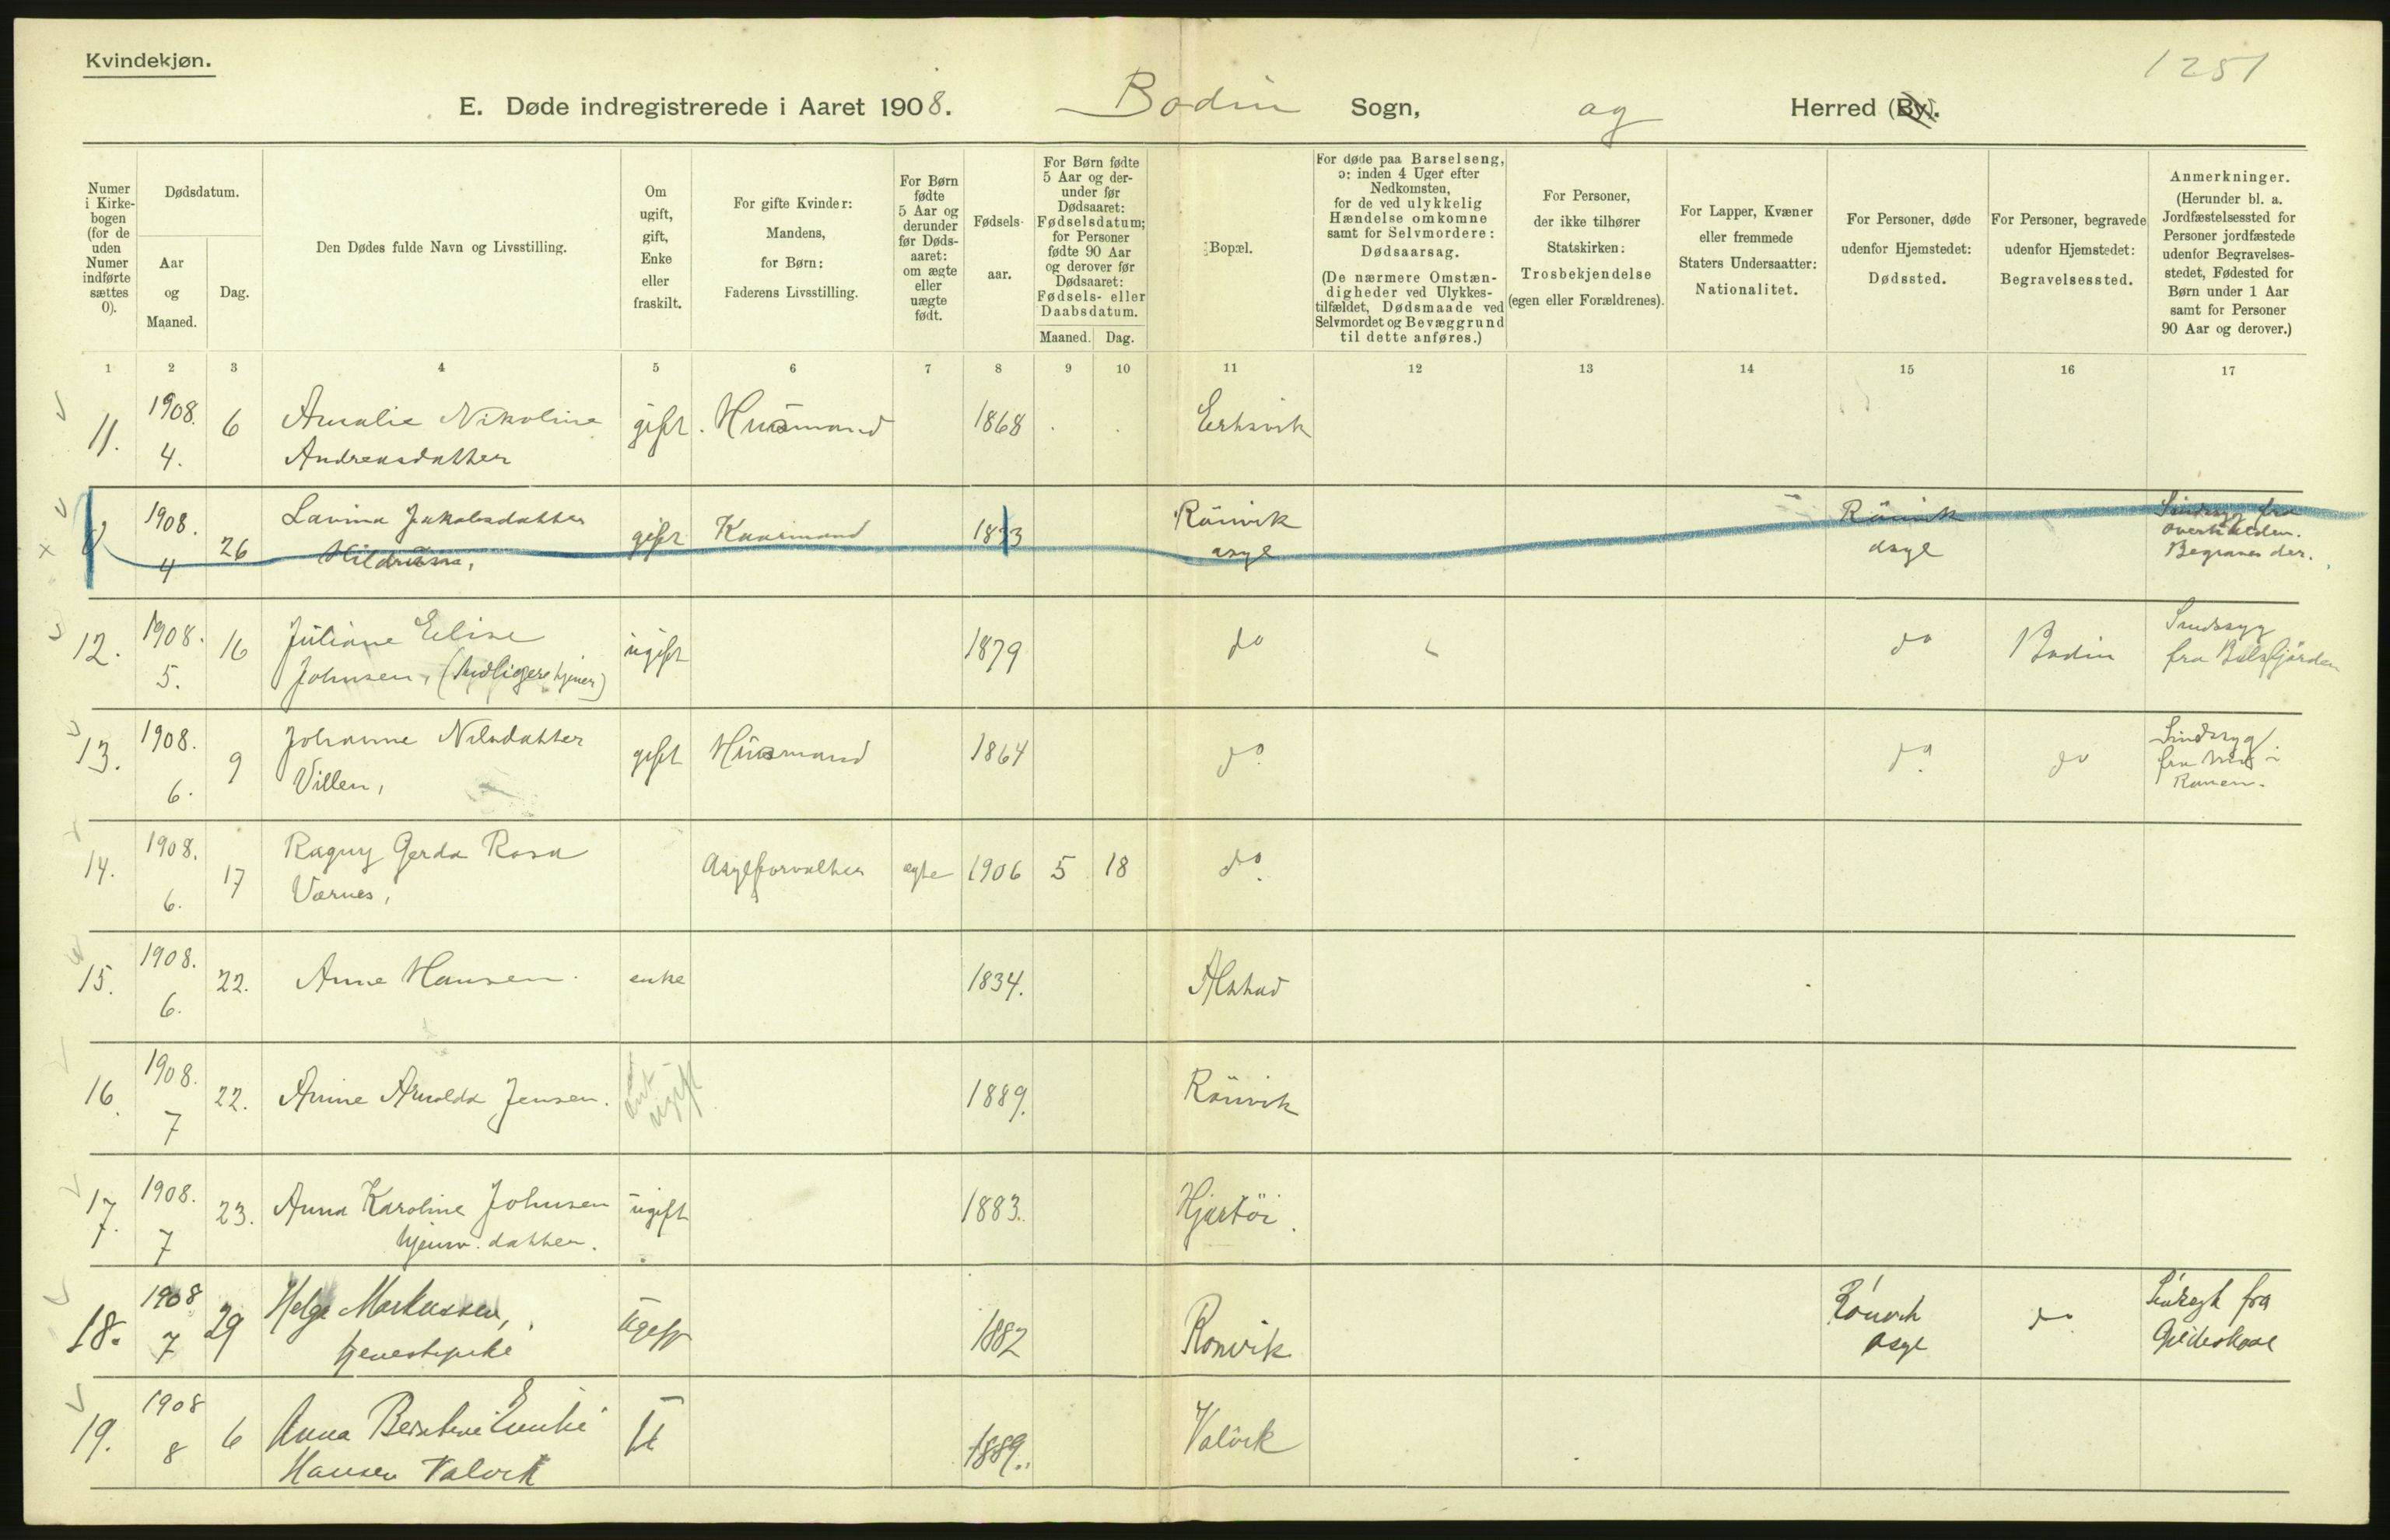 Kvindekjøn.
1251
E. Døde indregistrerede i Aaret 1908. Bodin Sogn, og Herred (By).
Numer i Kirkebogen (for de uden Numer indførte sættes 0).
Dødsdatum.
Aar og Maaned.
Dag.
Den Dødes fulde Navn og Livsstilling.
Om ugift, gift, Enke eller fraskilt.
For gifte Kvinder: Mandens, for Børn: Faderens Livsstilling.
For Børn fødte 5 Aar og derunder før Dødsaaret: om ægte eller uægte født.
Fødselsaar.
For Børn fødte 5 Aar og derunder før Dødsaaret: Fødselsdatum; for Personer fødte 90 Aar og derover før Dødsaaret: Fødsels- eller Daabsdatum.
Maaned. Dag.
Bopæl.
For døde paa Barselseng, ɔ: inden 4 Uger efter Nedkomsten, for de ved ulykkelig Hændelse omkomne samt for Selvmordere: Dødsaarsag.
(De nærmere Omstændigheder ved Ulykkestilfældet, Dødsmaade ved Selvmordet og Bevæggrund til dette anføres.)
For Personer, der ikke tilhører Statskirken: Trosbekjendelse (egen eller Forældrenes).
For Lapper, Kvæner eller fremmede Staters Undersaatter: Nationalitet.
For Personer, døde udenfor Hjemstedet: Dødssted.
For Personer, begravede udenfor Hjemstedet: Begravelsessted.
Anmerkninger. (Herunder bl. a. Jordfæstelsessted for Personer jordfæstede udenfor Begravelsesstedet, Fødested for Børn under 1 Aar samt for Personer 90 Aar og derover.)
1 2 3 4 5 6 7 8 9 10 11 12 13 14 15 16 17
11. 1908. 4. 6 Amalie Nikoline gift. Husmand 1868
Andreasdatter
1908. 4 26 Lavina Jakobsdatter gift Rönvik Rönvik Sindssyg fra
asyl asyl Begraves der.
12. 1908. 5. 16 Juliane Elise ugift 1879 do do Bodin Sindssyg
Johnsen, fra Balsfjorden
13. 1908. 6. 9 Johanne Nilsdatter gift Husmand 1864 do. do. do Sindssyg
Villen, fra Mo i
Ranen.
14. 1908. 6. 17 Ragny Gerda Rosa Asylforvalter ægte 1906 5 18 do.
Værnes,
15. 1908. 6. 22. Anne Hansen. enke 1834. Alstad
16. 1908. 7 22. Anine Arnolda Jensen. ant ugift 1889. Rönvik
17. 1908. 7 23. Anna Karoline Johnsen ugift 1883. Hjartöi.
datter.
18. 1908 7 29 Helga Markussen, ugift 1882 Ronvik Rönvik do Sindssyk fra
tjenestepike asyl Gildeskaal
19. 1908 8 6 Anna Berntine Emilie U 1889. Valvik
Hansen Valvik